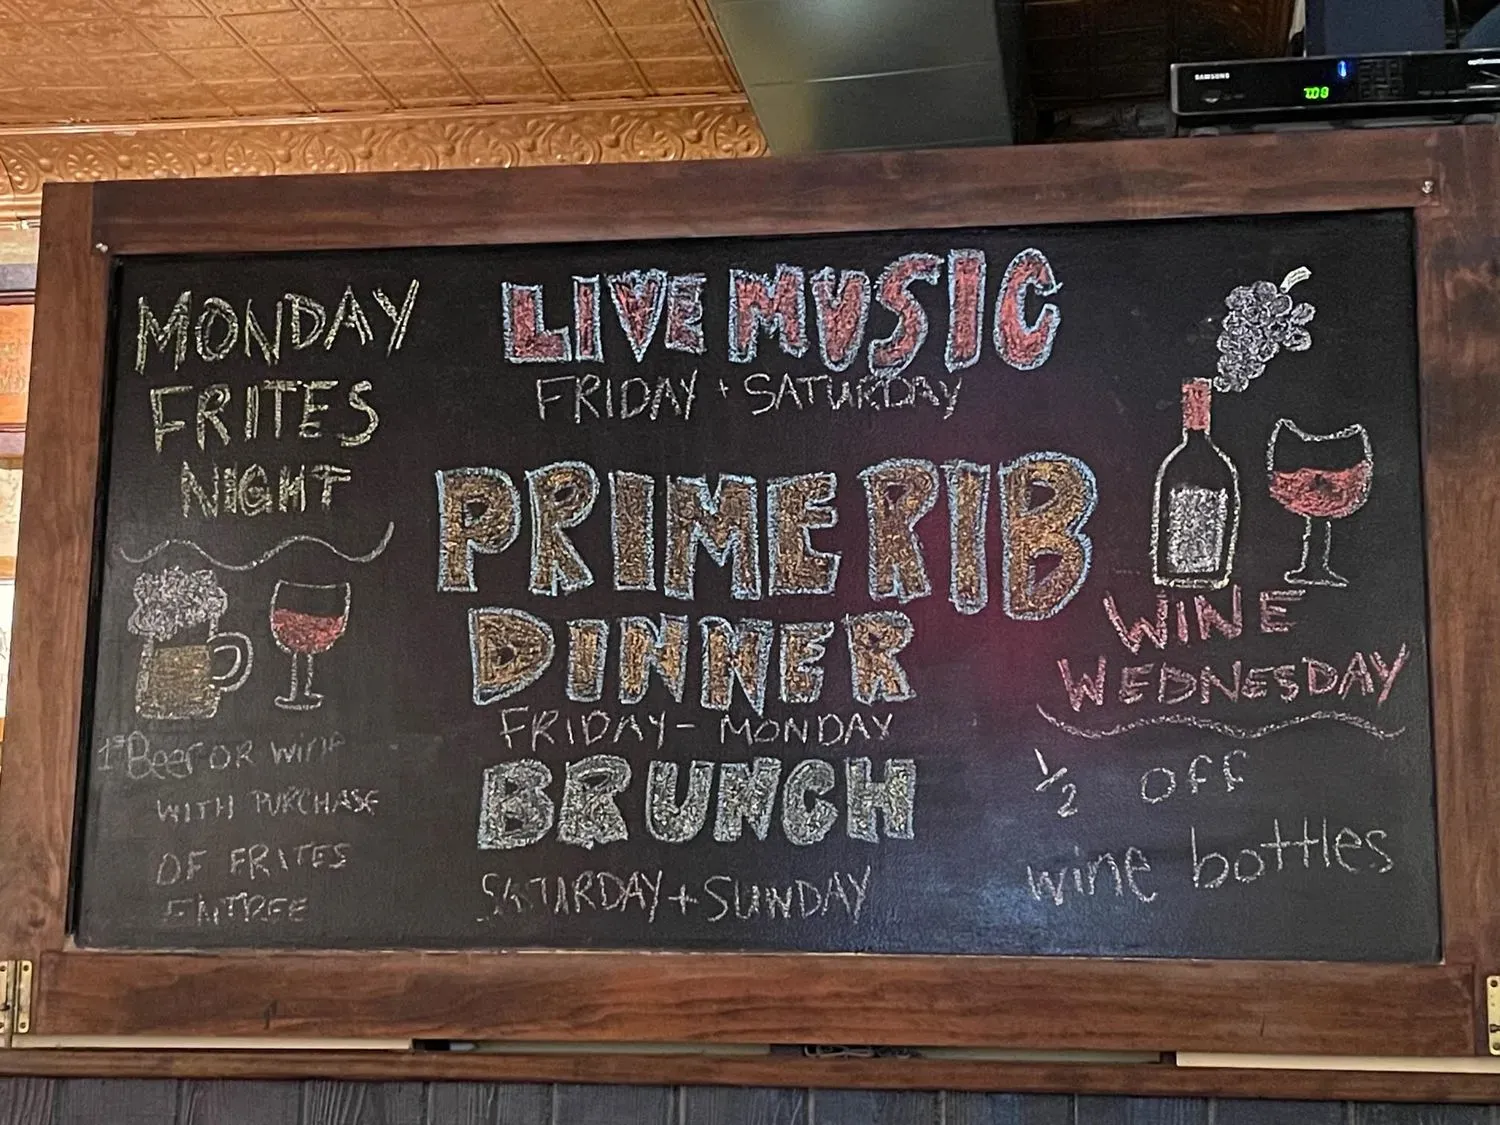 MONDAY
FRITES
NIGHT
1st Beer OR wine
WITH PURCHASE
OF FRITES
ENTREE
LIVE MUSIC
FRIDAY + SATURDAY
PRIME RIB
DINNER
FRIDAY - MONDAY
BRUNCH
SATURDAY + SUNDAY
WINE
WEDNESDAY
1/2 off
wine bottles
SAMSUNG
7:08